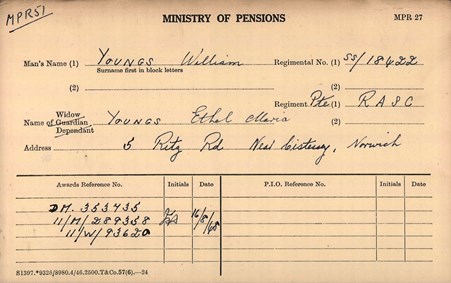 MPR51
MINISTRY OF PENSIONS
MPR 27
Man's Name (1) YOUNGS William Regimental No. (1) SS/18422
Surname first in block letters
(2) (2)
Regiment Pte (1) R A S C
Widow
Name of Guardian YOUNGS Ethel Maria (2)
Dependant
Address 5 Ritz Rd New Costessey, Norwich
Awards Reference No. Initials Date P.I.O. Reference No. Initials Date
DM. 353435
11/M/289358 16/8/48
11/W/93620
B1397.*9226/8980.4/46.2500.T&Co.57(6).—24